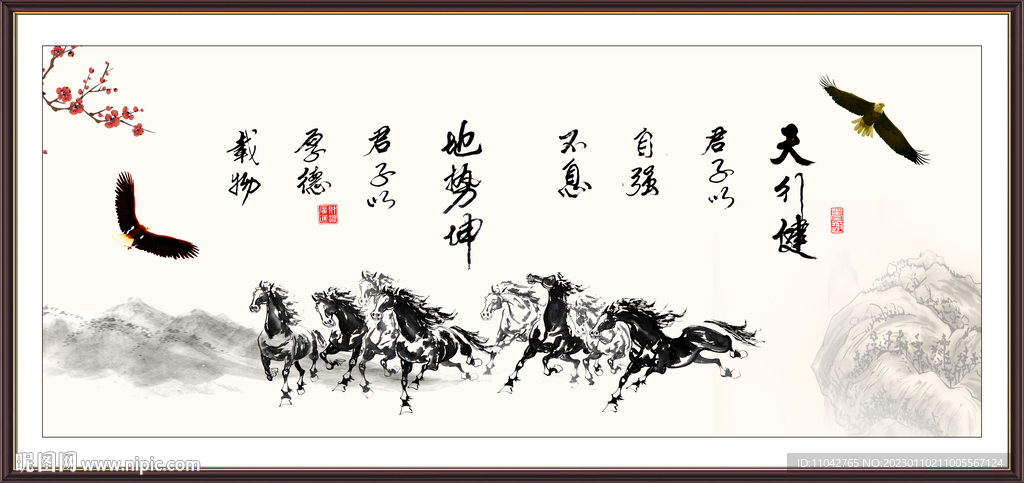 天行健
君子以
自强
不息
地势坤
君子以
厚德
载物
昵图网 www.nipic.com
ID:11042765 NO:20230110211005567124